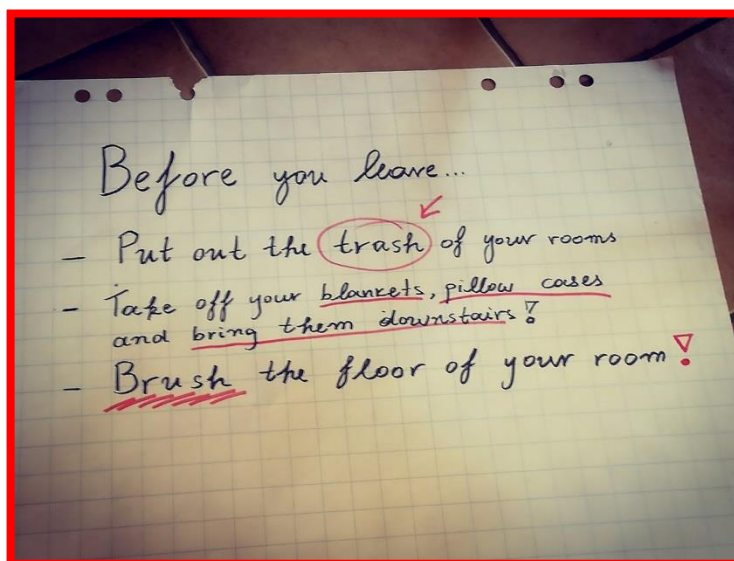 Before you leave...
- Put out the trash of your rooms
- Take off your blankets, pillow cases
and bring them downstairs!
- Brush the floor of your room!